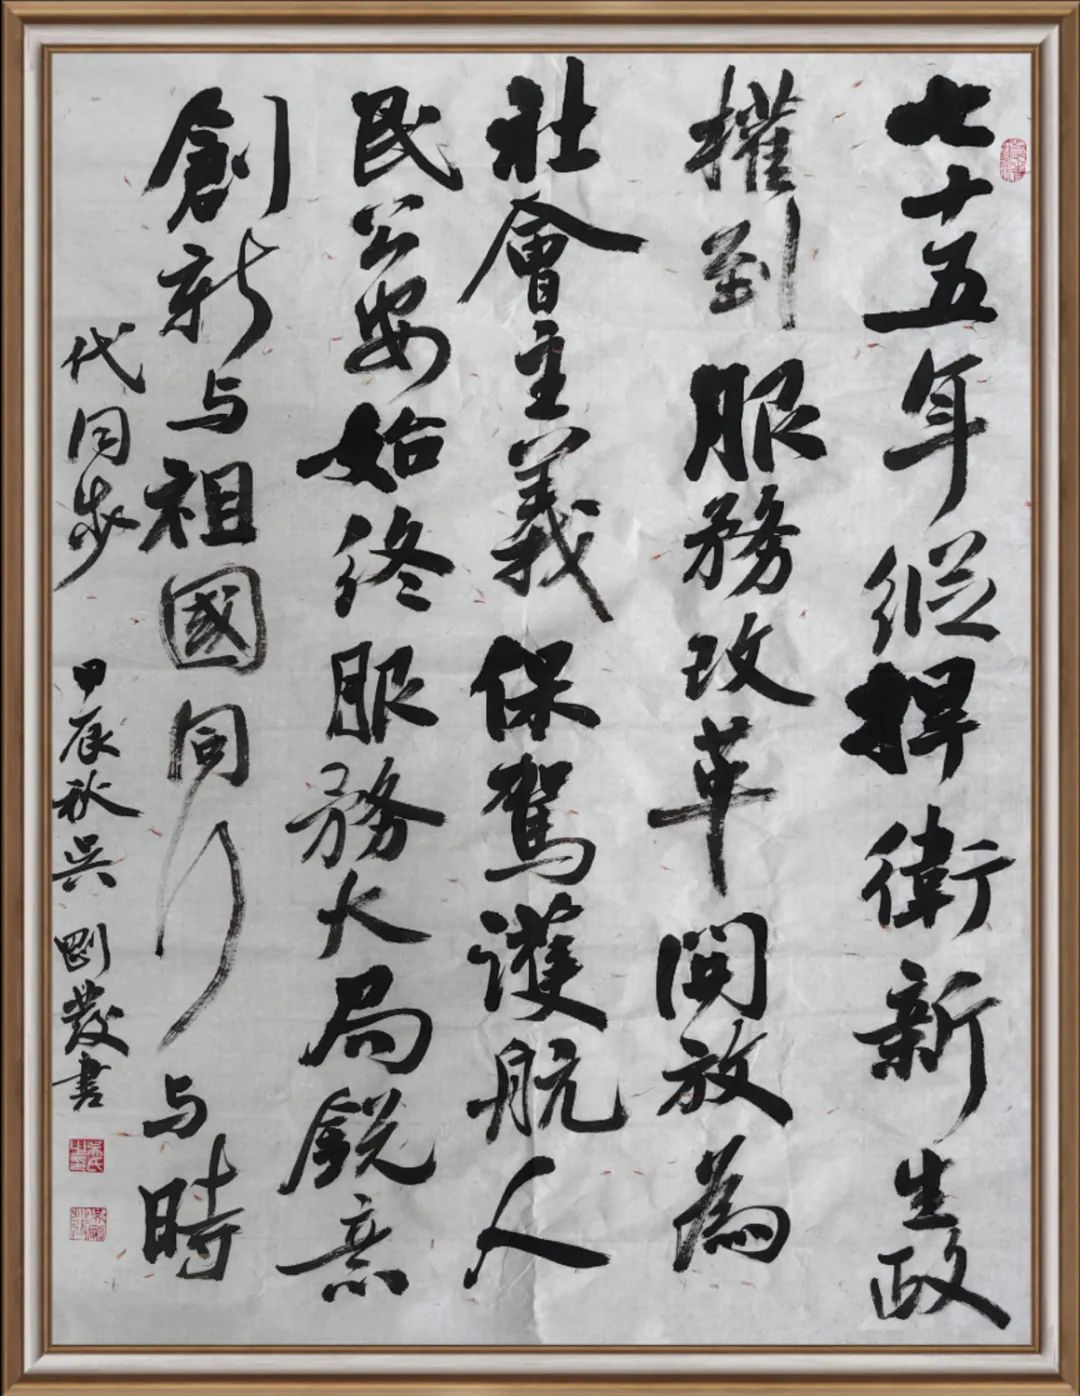 七十五年縱捍衛新生政
權到服務改革開放為
社會主義保駕護航人
民公安始終服務大局銳意
創新与祖國同行与時
代同步
甲辰秋吴剛發書